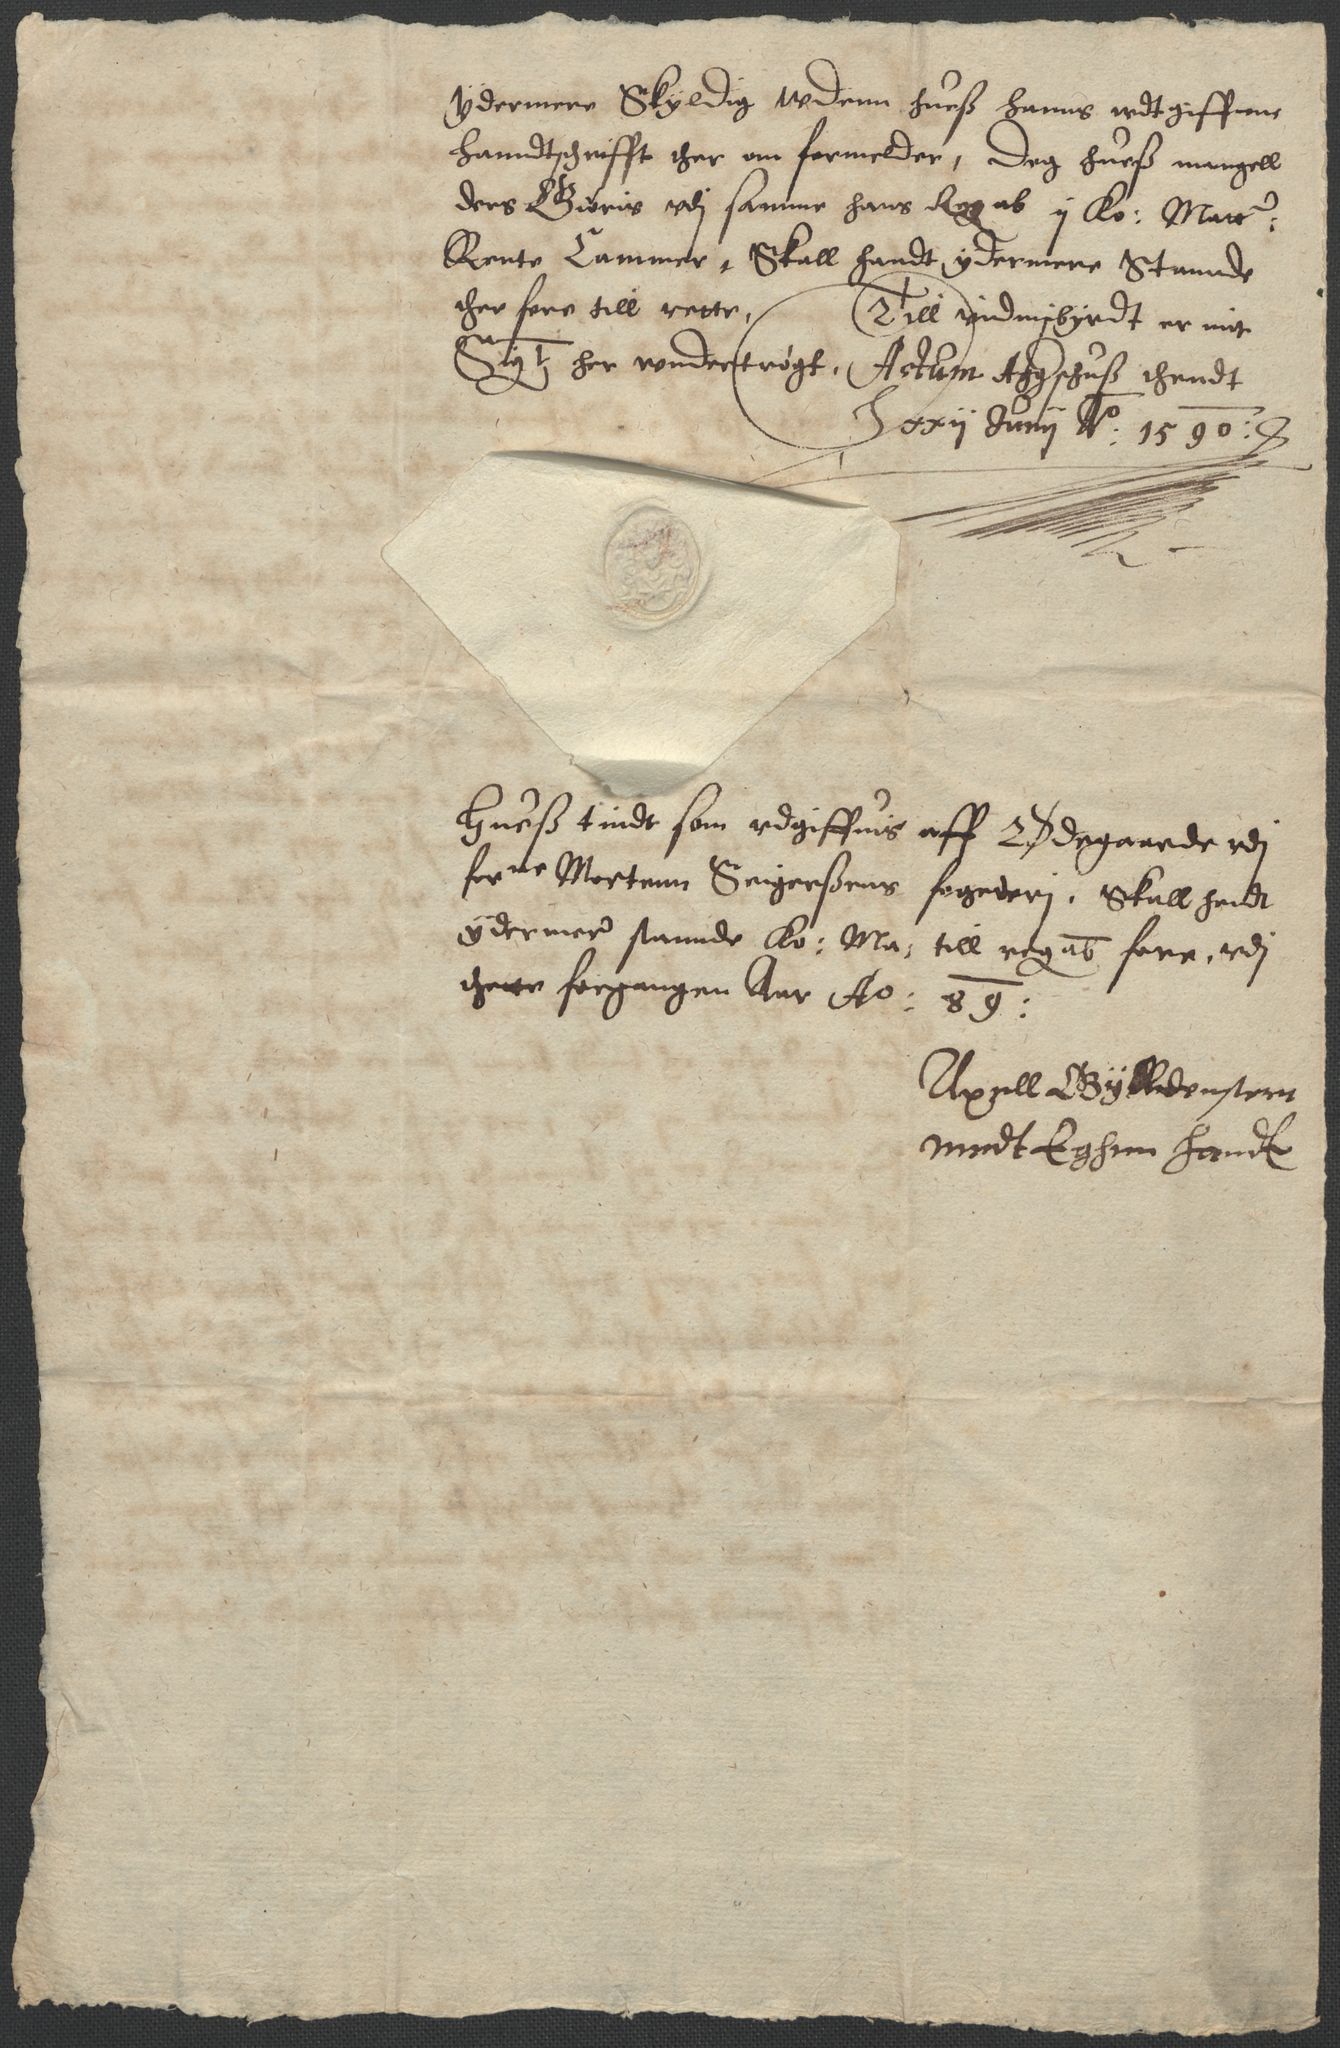 Ydermere Skyldig wdenn hues hanns wdtgiffne
handtschrifft ther om formelder, Dog hues mangell
ders Giøris vdj samme hans Regnskab y Ko: Matts:
Rente Cammer, Skall handt ydermere Stannde
ther fore till rette, Till vidnisbyrdt er mit
Sig: her wndertrøgt, Actum Aggershuss thendt
xxij Junij Ao: 1590:
Huess tindt som vdgiffuis aff Ødegaarde vdj
forne Mortenn Seigerssens fogederj, Skall handt
ydermer stannde Ko: Ma: till regnskab fore, vdj
thette forgangen Aar Ao: 89:
Axell Gyldenstern
medt Eghen handt